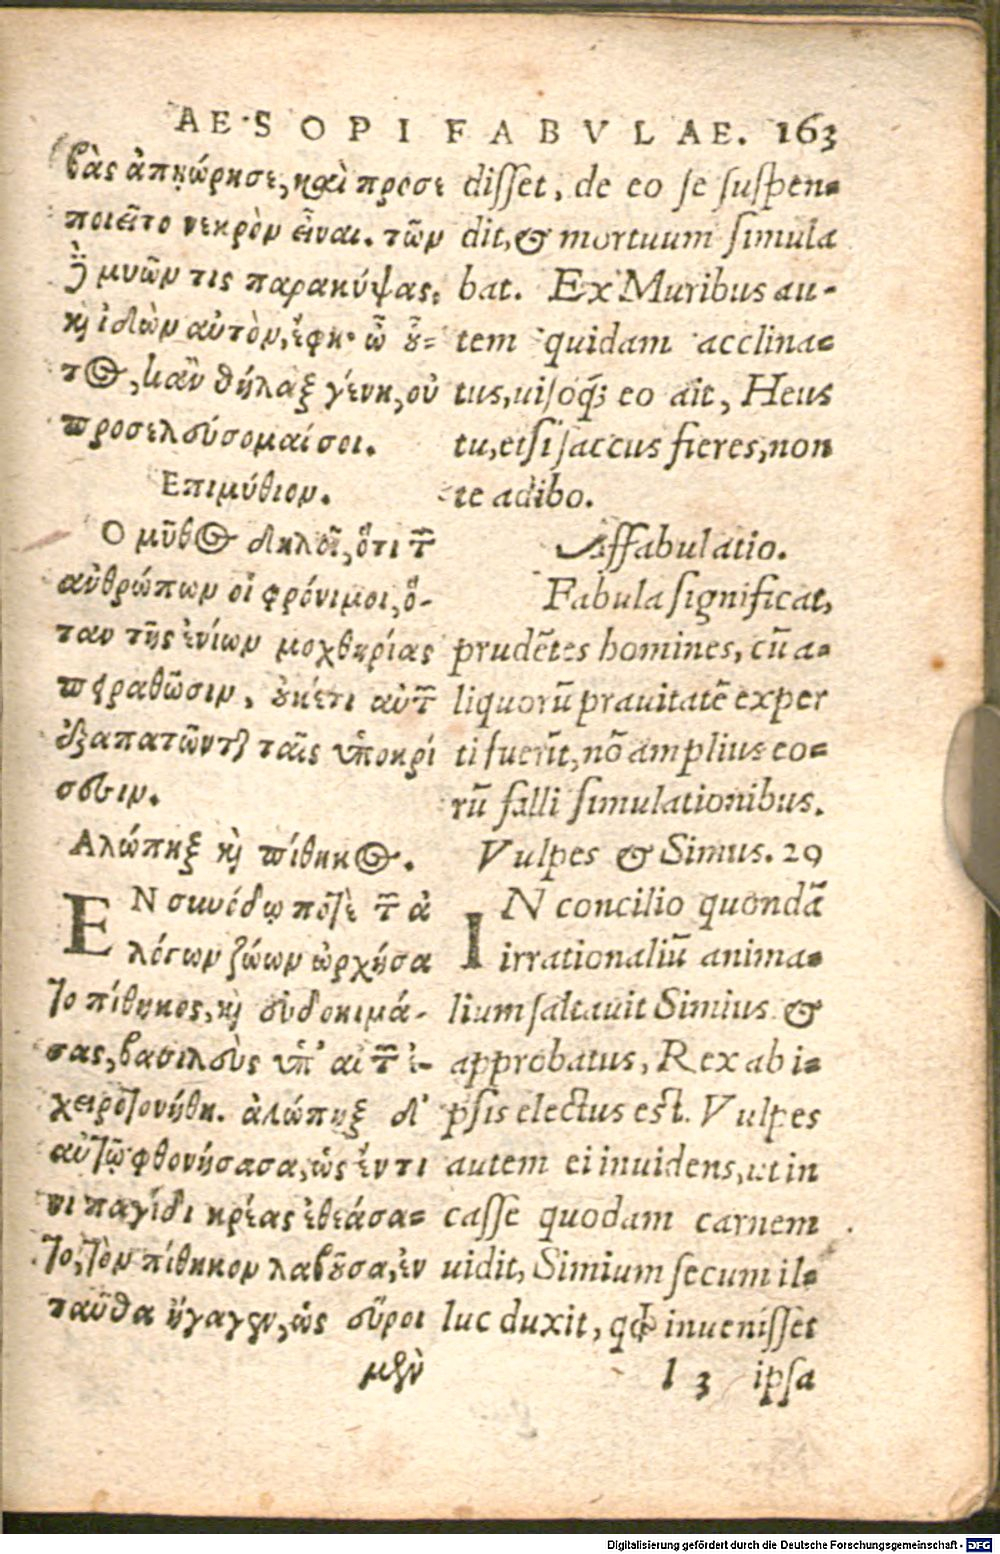 AESOPI FABVLAE. 163
βὰς ἀπῃώρησε, καὶ προσε
ποιεῖτο νεκρὸν εἶναι. τῶν
μυῶν τις παρακύψας,
κ̀ ἰδὼν αὐτὸν, ἔφη· ὦ ȣ̃-
τ@, κἂν θύλαξ γένῃ, οὐ
προσελεύσομαί σοι.
Επιμύθιον.
Ο μῦθ@ δηλοῖ, ὅτι τῶν
ἀνθρώπων οἱ φρόνιμοι, ὅ-
ταν τῆς ἐνίων μοχθηρίας
πειραθῶσιν, ȣ̓κέτι αὐτῶν
ἐξαπατῶνται ταῖς ὑποκρί
σεσιν.
Αλώπηξ κ̀ πίθηκ@.
ΕΝ συνόδῳ ποτὲ τῶν ἀ
λόγων ζώων ὠρχήσα
το πίθηκος, κ̀ εὐδοκιμά-
σας, βασιλεὺς ὑπ' αὐτῶν ἐ-
χειροτονήθη. ἀλώπηξ δ'
αὐτῷ φθονήσασα, ὡς ἔν τι
νι παγίδι κρέας ἐθεάσα-
το, τὸν πίθηκον λαβȣ̃σα, ἐν
ταῦθα ἤγαγεν, ὡς εὕροι
μὲν
disset, de eo se suspen-
dit, & mortuum simula
bat. Ex Muribus au-
tem quidam acclina-
tus, uisoq́; eo ait, Heus
tu, etsi saccus fieres, non
te adibo.
Affabulatio.
Fabula significat,
prudẽtes homines, cũ a-
liquorũ prauitatẽ exper
ti fuerĩt, nõ amplius eo-
rũ falli simulationibus.
Vulpes & Simus. 29
IN concilio quondã
irrationaliũ anima-
lium saltauit Simius &
approbatus, Rex ab i-
psis electus est. Vulpes
autem ei inuidens, ut in
casse quodam carnem
uidit, Simium secum il-
luc duxit, qđ inuenisset
l 3 ipsa
Digitalisierung gefördert durch die Deutsche Forschungsgemeinschaft - DFG